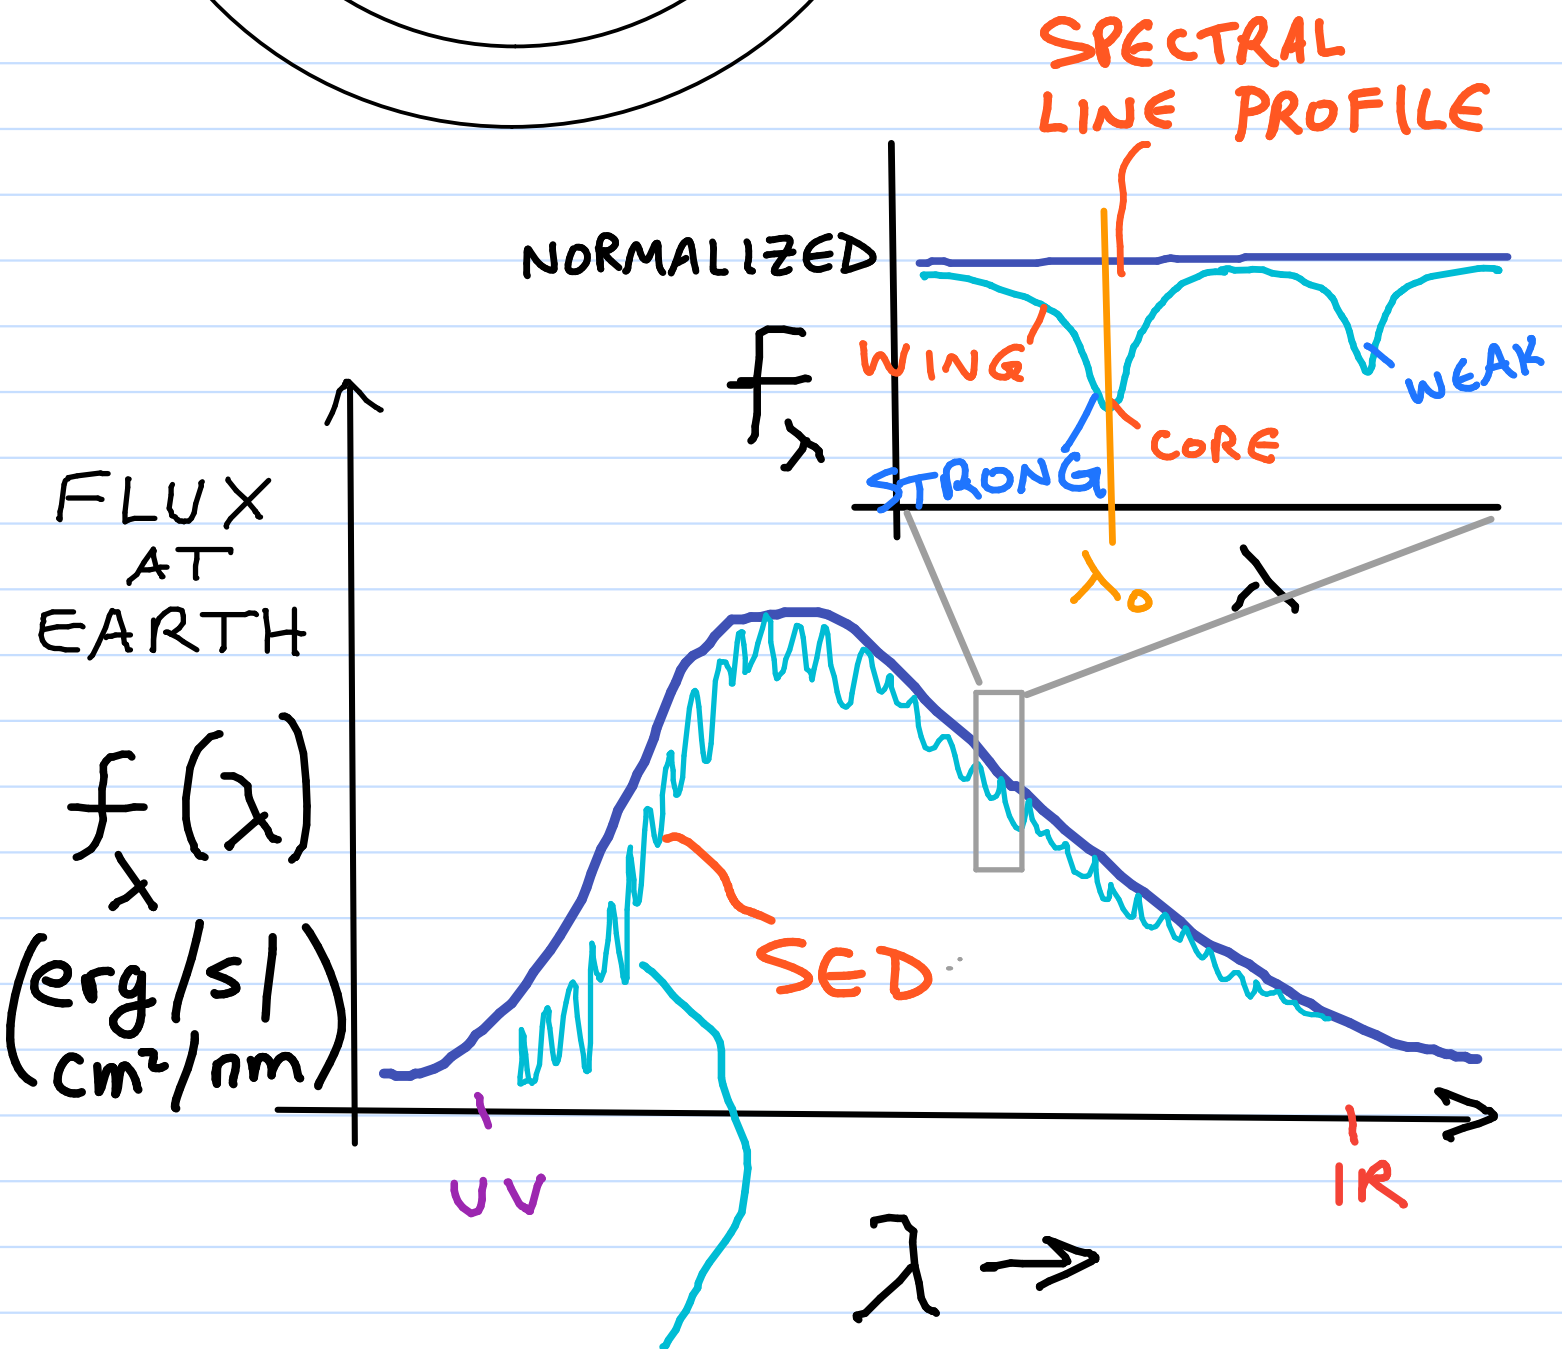 SPECTRAL
LINE PROFILE
NORMALIZED
F
λ
WING
WEAK
CORE
STRONG
λ₀
λ
FLUX
AT
EARTH
f (λ)
λ
(erg/s/
cm²/nm)
SED
UV
IR
λ →